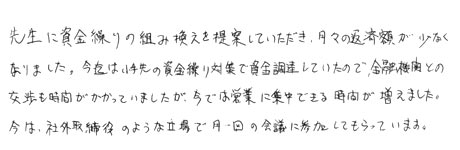 先生に資金繰りの組み換えを提案していただき、月々の返済額が少なく
なりました。今迄は小手先の資金繰り対策で資金調達していたので金融機関との
交渉も時間がかかっていましたが、今では営業に集中できる時間が増えました。
今は、社外取締役のような立場で月一回の会議に参加してもらっています。